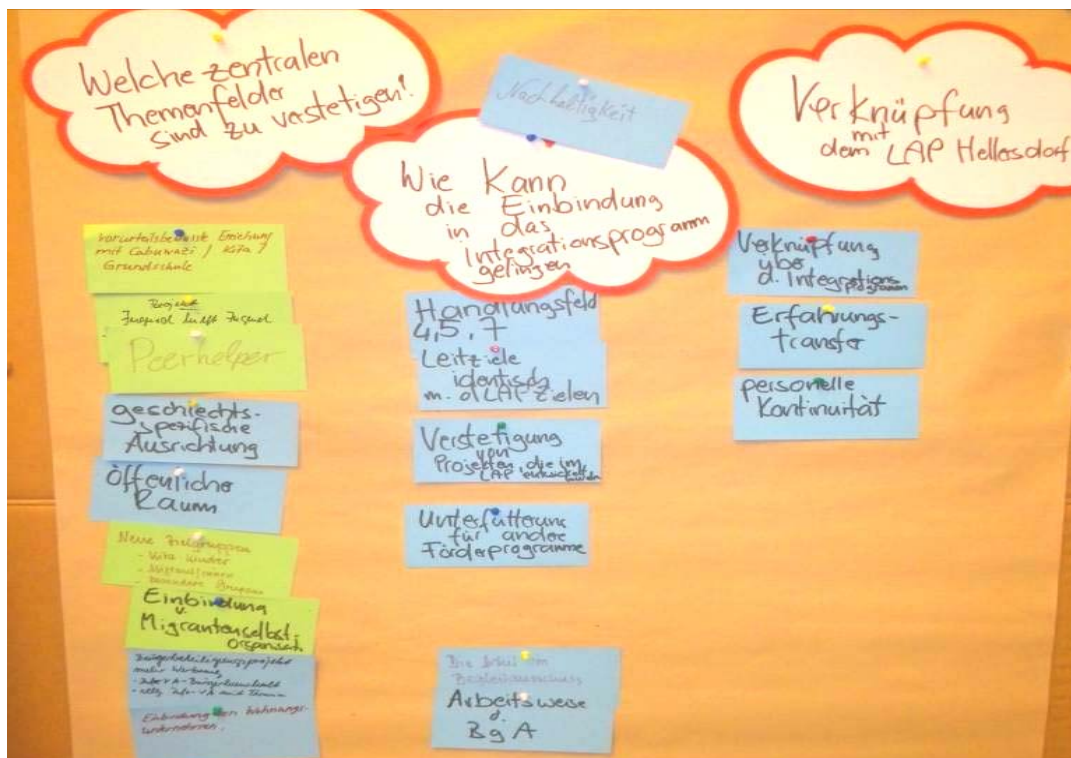 Welche zentralen
Themenfelder
sind zu verstetigen!
vorurteilsbewusste Erziehung
mit Cabuwazi / Kita /
Grundschule
Projekt
Jugend hilft Jugend
Peerhelper
geschlechts-
spezifische
Ausrichtung
Öffentlicher
Raum
Neue Zielgruppen
- Kita Kinder
- besondere Gruppen
Einbindung
v.
Migrantenselbst-
organisat.
Bürgerbeteiligungsprojekte
mehr Werbung
Einbindung von Wohnungs-
unternehmen.
Nachhaltigkeit
Wie Kann
die Einbindung
in das
Integrationsprogramm
gelingen
Handlungsfeld
4,5,7
Leitziele
identisch
m. d. LAP Zielen
Verstetigung
von
Projekten, die im
LAP entwickelt
wurden
Unterfütterung
für andere
Förderprogramme
Die Arbeit im
Begleitausschuss
Arbeitsweise
d.
BgA
Verknüpfung
mit
dem LAP Hellersdorf
Verknüpfung
über
d. Integrations
programm
Erfahrungs-
transfer
personelle
Kontinuität